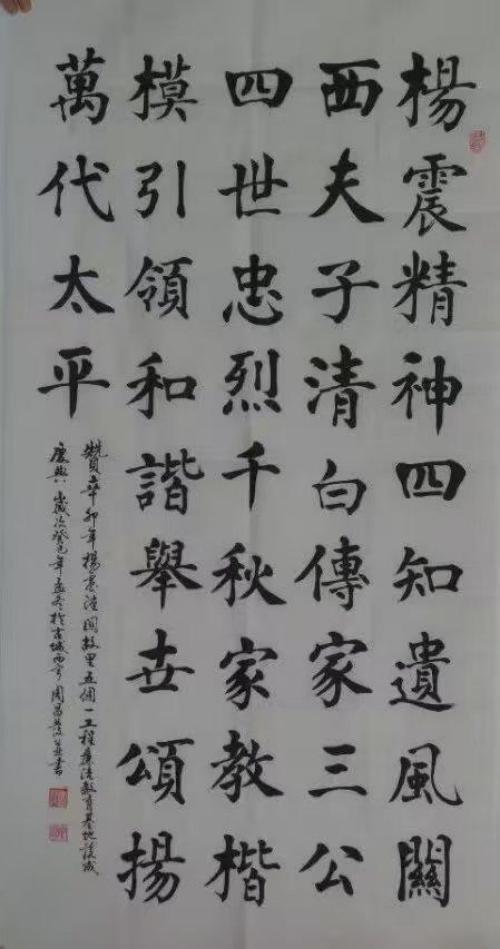 楊震精神四知遺風關
西夫子清白傳家三公
四世忠烈千秋家教楷
模引領和諧舉世頌揚
萬代太平
贊辛卯年楊震潼関故里五個一工程廉潔教育基地落成
慶典 歲次癸巳年孟冬於古城西安 周昌 書